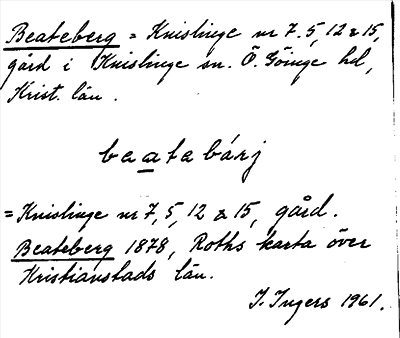 Beateberg = Knislinge nr 7, 5, 12 & 15,
gård i Knislinge sn. Ö. Göinge hd,
Krist. län.
beatabárj
= Knislinge nr 7, 5, 12 & 15, gård.
Beateberg 1878, Roths karta över
Kristianstads län.
I. Ingers 1961.